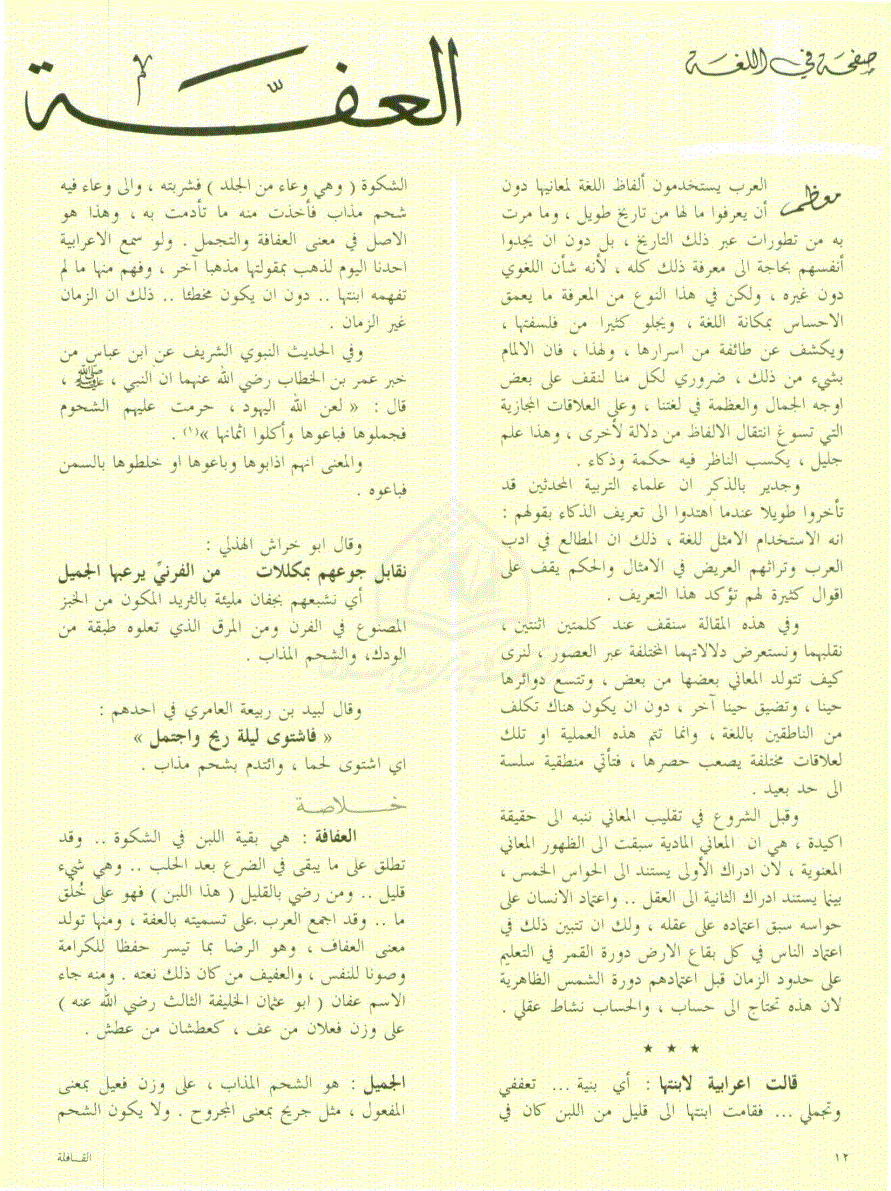 صفحة في اللغة
العفّة
معظم العرب يستخدمون ألفاظ اللغة لمعانيها دون
أن يعرفوا ما لها من تاريخ طويل ، وما مرت
به من تطورات عبر ذلك التاريخ ، بل دون ان يجدوا
أنفسهم بحاجة الى معرفة ذلك كله ، لأنه شأن اللغوي
دون غيره ، ولكن في هذا النوع من المعرفة ما يعمق
الاحساس بمكانة اللغة ، ويجلو كثيرا من فلسفتها ،
ويكشف عن طائفة من اسرارها ، ولهذا ، فان الالمام
بشيء من ذلك ، ضروري لكل منا لنقف على بعض
اوجه الجمال والعظمة في لغتنا ، وعلى العلاقات المجازية
التي تسوغ انتقال الالفاظ من دلالة لأخرى ، وهذا علم
جليل ، يكسب الناظر فيه حكمة وذكاء .
وجدير بالذكر ان علماء التربية المحدثين قد
تأخروا طويلا عندما اهتدوا الى تعريف الذكاء بقولهم :
انه الاستخدام الامثل للغة ، ذلك ان المطالع في ادب
العرب وتراثهم العريض في الامثال والحكم يقف على
اقوال كثيرة لهم تؤكد هذا التعريف .
وفي هذه المقالة سنقف عند كلمتين اثنتين ،
نقلبهما ونستعرض دلالاتهما المختلفة عبر العصور ، لنرى
كيف تتولد المعاني بعضها من بعض ، وتتسع دوائرها
حينا ، وتضيق حينا آخر ، دون ان يكون هناك تكلف
من الناطقين باللغة ، وانما تتم هذه العملية او تلك
لعلاقات مختلفة يصعب حصرها ، فتأتي منطقية سلسة
الى حد بعيد .
وقبل الشروع في تقليب المعاني ننبه الى حقيقة
اكيدة ، هي ان المعاني المادية سبقت الى الظهور المعاني
المعنوية ، لان ادراك الأولى يستند الى الحواس الخمس ،
بينما يستند ادراك الثانية الى العقل .. واعتماد الانسان على
حواسه سبق اعتماده على عقله ، ولك ان تتبين ذلك في
اعتماد الناس في كل بقاع الارض دورة القمر في التعليم
على حدود الزمان قبل اعتمادهم دورة الشمس الظاهرية
لان هذه تحتاج الى حساب ، والحساب نشاط عقلي .
★ ★ ★
قالت اعرابية لابنتها : أي بنية ... تعففي
وتجملي ... فقامت ابنتها الى قليل من اللبن كان في
الشكوة ( وهي وعاء من الجلد ) فشربته ، والى وعاء فيه
شحم مذاب فأخذت منه ما تأدمت به ، وهذا هو
الاصل في معنى العفافة والتجمل . ولو سمع الاعرابية
احدنا اليوم لذهب بمقولتها مذهبا آخر ، وفهم منها ما لم
تفهمه ابنتها .. دون ان يكون مخطئا .. ذلك ان الزمان
غير الزمان .
وفي الحديث النبوي الشريف عن ابن عباس من
خبر عمر بن الخطاب رضي الله عنهما ان النبي ، ﷺ ،
قال : « لعن الله اليهود ، حرمت عليهم الشحوم
فجملوها فباعوها وأكلوا اثمانها »(١) .
والمعنى انهم اذابوها وباعوها او خلطوها بالسمن
فباعوه .
وقال ابو خراش الهذلي :
نقابل جوعهم بمكللات من الفرنيِّ يرعبها الجميل
أي نشبعهم بجفان مليئة بالثريد المكون من الخبز
المصنوع في الفرن ومن المرق الذي تعلوه طبقة من
الودك، والشحم المذاب .
وقال لبيد بن ربيعة العامري في احدهم :
« فاشتوى ليلة ريح واجتمل »
اي اشتوى لحما ، وائتدم بشحم مذاب .
خلاصة
العفافة : هي بقية اللبن في الشكوة .. وقد
تطلق على ما يبقى في الضرع بعد الحلب .. وهي شيء
قليل .. ومن رضي بالقليل ( هذا اللبن ) فهو على خُلُق
ما .. وقد اجمع العرب على تسميته بالعفة ، ومنها تولد
معنى العفاف ، وهو الرضا بما تيسر حفظا للكرامة
وصونا للنفس ، والعفيف من كان ذلك نعته . ومنه جاء
الاسم عفان ( ابو عثمان الخليفة الثالث رضي الله عنه )
على وزن فعلان من عف ، كعطشان من عطش .
الجميل : هو الشحم المذاب ، على وزن فعيل بمعنى
المفعول ، مثل جريح بمعنى المجروح . ولا يكون الشحم
١٢
القافلة